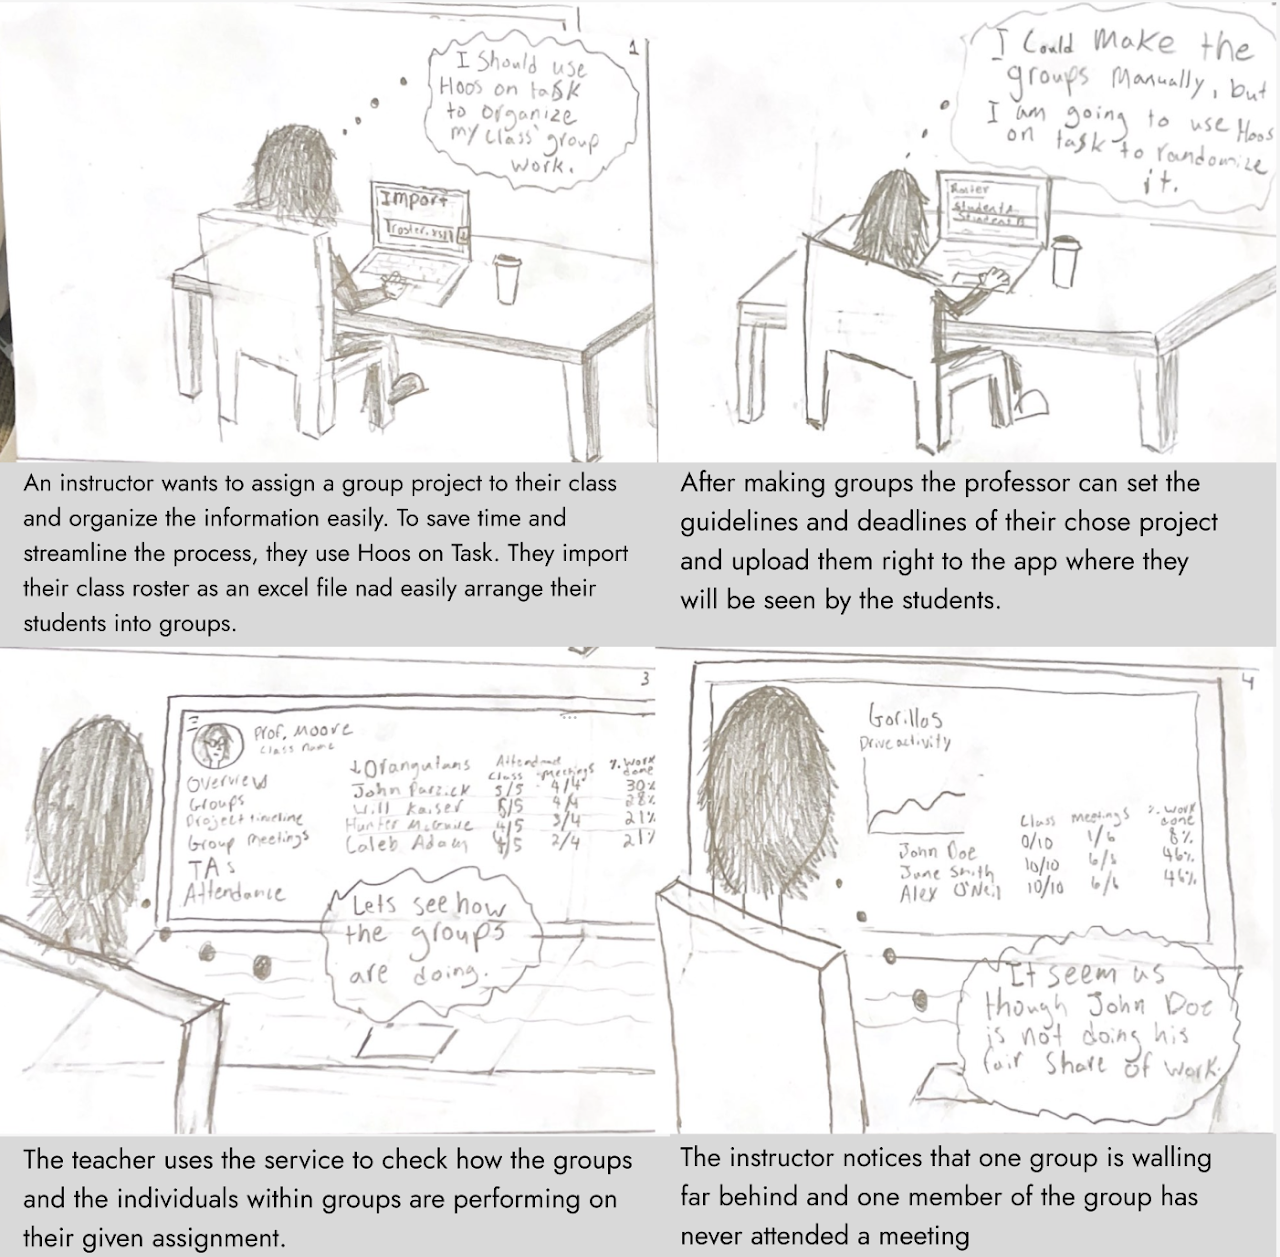 1
I Should use
Hoos on task
to organize
my class' group
work.
Import
roster.xsl
An instructor wants to assign a group project to their class
and organize the information easily. To save time and
streamline the process, they use Hoos on Task. They import
their class roster as an excel file nad easily arrange their
students into groups.
I Could make the
groups manually, but
I am going to use Hoos
on task to randomize
it.
Roster
Student A
Student B
After making groups the professor can set the
guidelines and deadlines of their chose project
and upload them right to the app where they
will be seen by the students.
3
Prof. Moore
Class name
Overview
Groups
Project timeline
Group meetings
TAs
Attendance
Attendance
↓Orangutans Class Meetings % work done
John Parzick 5/5 4/4 30%
Will Kaiser 5/5 4/4 28%
Hunter McGuire 4/5 3/4 21%
Caleb Adam 4/5 2/4 21%
Lets see how
the groups
are doing.
The teacher uses the service to check how the groups
and the individuals within groups are performing on
their given assignment.
4
Gorillas
Drive activity
Class Meetings % work done
John Doe 0/10 1/6 8%
June Smith 10/10 6/6 46%
Alex O'Neil 10/10 6/6 46%
It seem us
though John Doe
is not doing his
fair share of work.
The instructor notices that one group is walling
far behind and one member of the group has
never attended a meeting